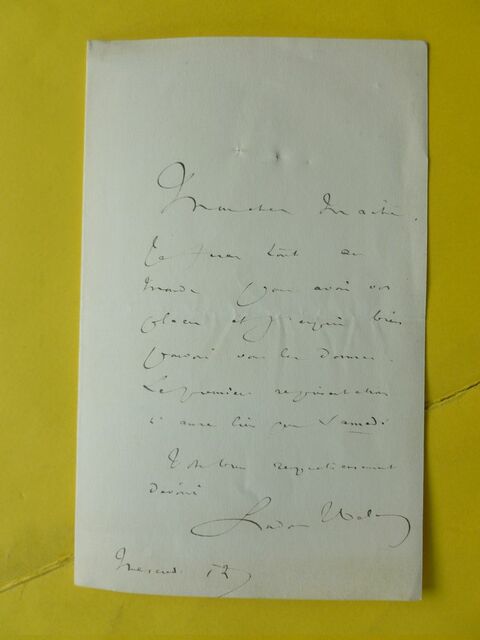 Mon cher Maître,
Je ferai tout au
monde pour avoir vos
places et j'espère bien
pouvoir vous les donner.
La première représentation
n'aura lieu que Samedi
Votre bien respectueusement
dévoué
Mercredi 12